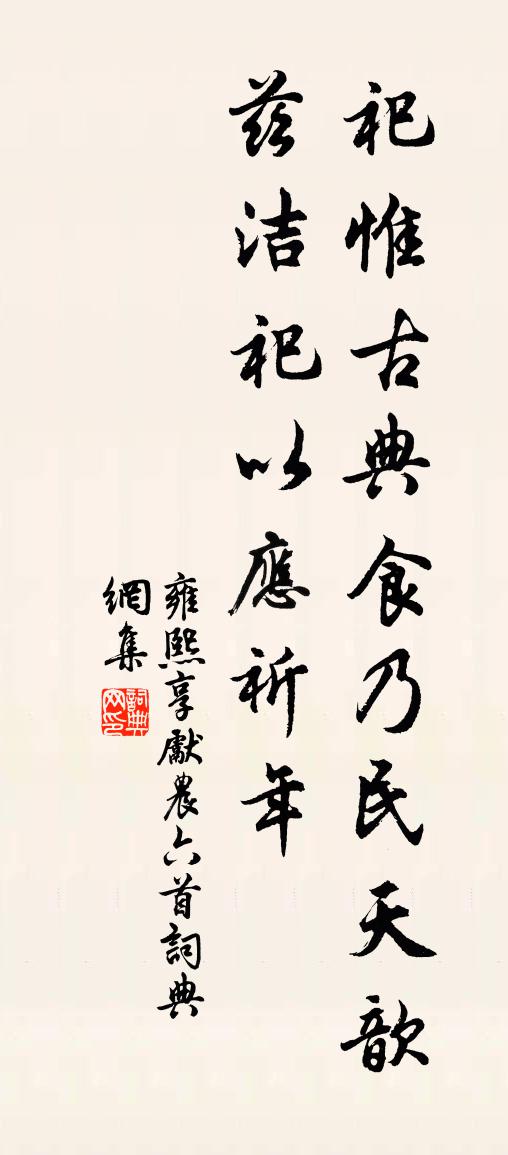 祀惟古典食乃民天歆
兹洁祀以應祈年
雍熙享獻農六首詞典
網集
詞典
网印